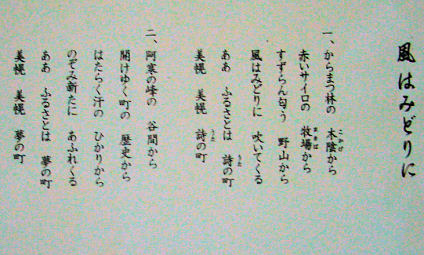 風はみどりに
一、からまつ林の 木陰から
赤いサイロの 牧場から
すずらん匂う 野山から
風はみどりに 吹いてくる
ああ ふるさとは 詩の町
美幌 美幌 詩の町
二、阿寒の峰の 谷間から
開けゆく町の 歴史から
はたらく汗の ひかりから
のぞみ新たに あふれくる
ああ ふるさとは 夢の町
美幌 美幌 夢の町